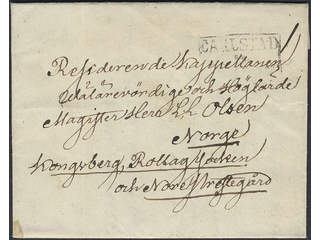 CARLSTAD
Residerende Kappellanen
och Höglärde
Magister Herr Olsen
Norge
Kongsberg, Rollag
och Nore Prestegård